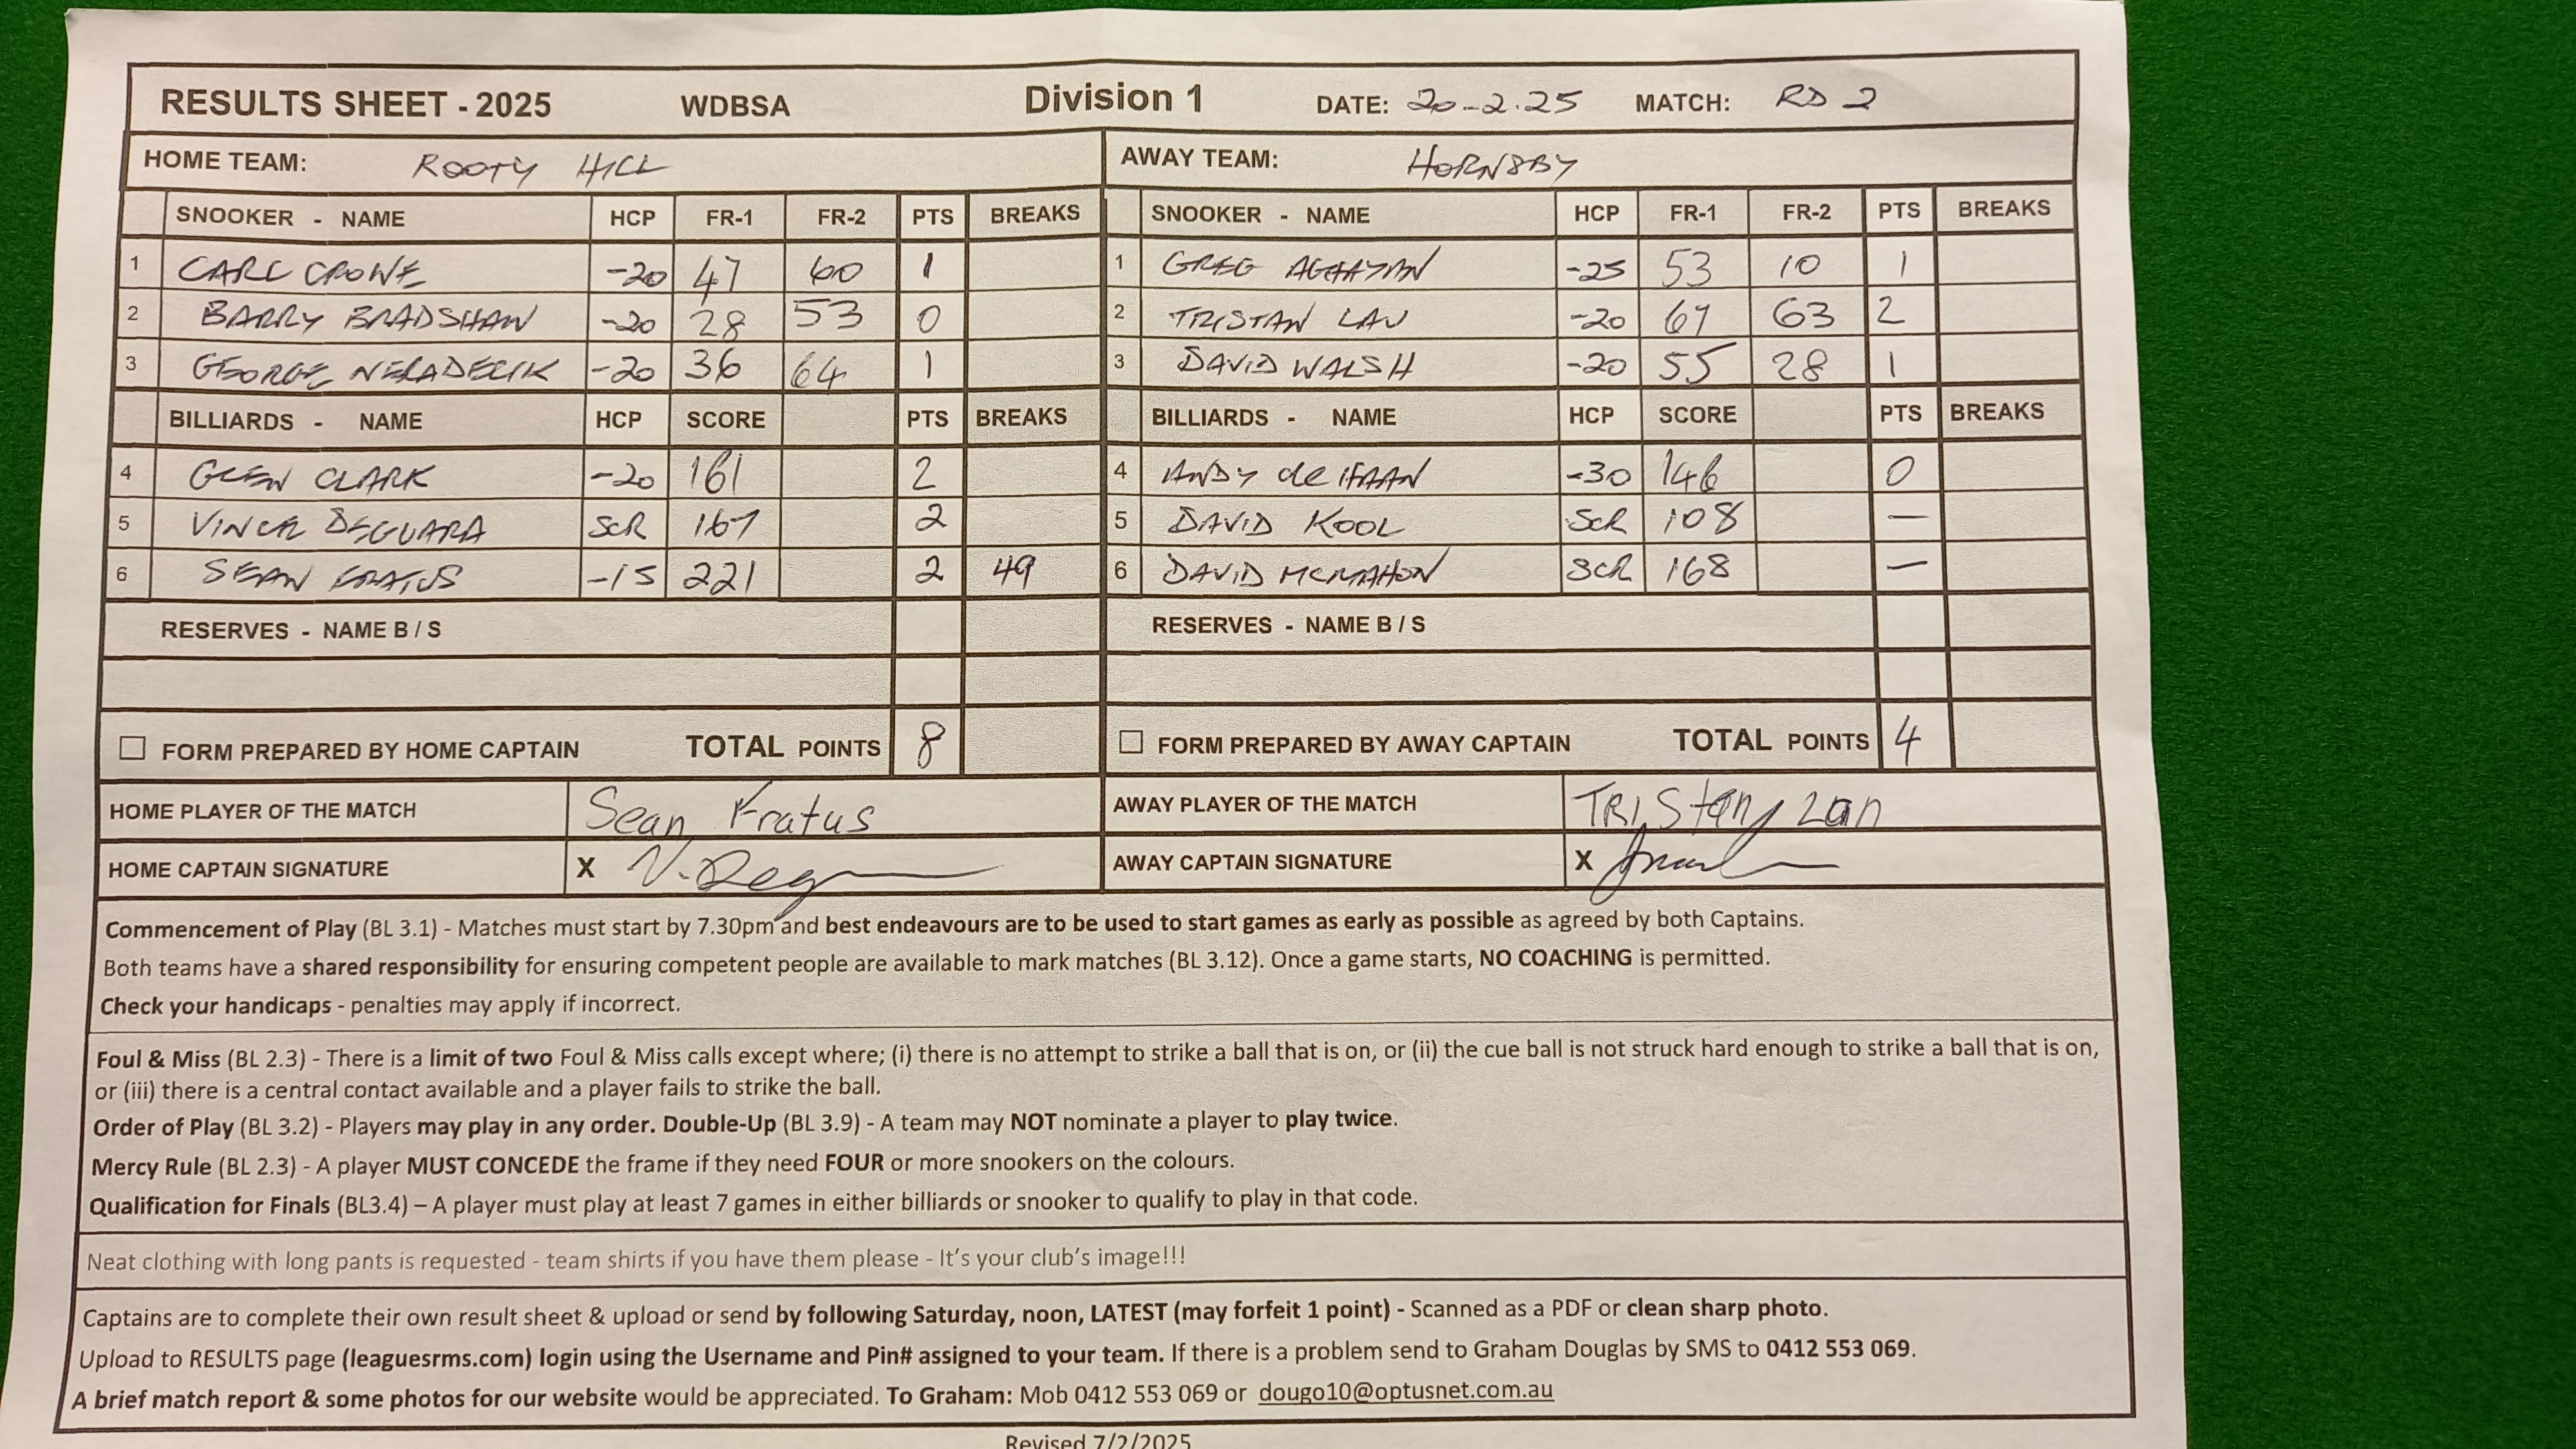 RESULTS SHEET - 2025 WDBSA Division 1 DATE: 20-2.25 MATCH: RD 2
HOME TEAM: ROOTY HILL AWAY TEAM: HORNSBY
SNOOKER - NAME HCP FR-1 FR-2 PTS BREAKS SNOOKER - NAME HCP FR-1 FR-2 PTS BREAKS
1 CARL CROWE -20 47 60 1 1 GREG AGHAYAN -25 53 10 1
2 BARRY BRADSHAW -20 28 53 0 2 TRISTAN LAU -20 67 63 2
3 GEORGE -20 36 64 1 3 DAVID WALSH -20 55 28 1
BILLIARDS - NAME HCP SCORE PTS BREAKS BILLIARDS - NAME HCP SCORE PTS BREAKS
4 GLEN CLARK -20 161 2 4 ANDY de HAAN -30 146 0
5 VINCE DEGUARA SCR 167 2 5 DAVID KOOL SCR 108 —
6 SEAN FRATUS -15 221 2 49 6 DAVID MCMAHON SCR 168 —
RESERVES - NAME B / S RESERVES - NAME B / S
FORM PREPARED BY HOME CAPTAIN TOTAL POINTS 8 FORM PREPARED BY AWAY CAPTAIN TOTAL POINTS 4
HOME PLAYER OF THE MATCH Sean Fratus AWAY PLAYER OF THE MATCH TRIStan Lan
HOME CAPTAIN SIGNATURE X AWAY CAPTAIN SIGNATURE X
Commencement of Play (BL 3.1) - Matches must start by 7.30pm and best endeavours are to be used to start games as early as possible as agreed by both Captains.
Both teams have a shared responsibility for ensuring competent people are available to mark matches (BL 3.12). Once a game starts, NO COACHING is permitted.
Check your handicaps - penalties may apply if incorrect.
Foul & Miss (BL 2.3) - There is a limit of two Foul & Miss calls except where; (i) there is no attempt to strike a ball that is on, or (ii) the cue ball is not struck hard enough to strike a ball that is on,
or (iii) there is a central contact available and a player fails to strike the ball.
Order of Play (BL 3.2) - Players may play in any order. Double-Up (BL 3.9) - A team may NOT nominate a player to play twice.
Mercy Rule (BL 2.3) - A player MUST CONCEDE the frame if they need FOUR or more snookers on the colours.
Qualification for Finals (BL3.4) – A player must play at least 7 games in either billiards or snooker to qualify to play in that code.
Neat clothing with long pants is requested - team shirts if you have them please - It's your club's image!!!
Captains are to complete their own result sheet & upload or send by following Saturday, noon, LATEST (may forfeit 1 point) - Scanned as a PDF or clean sharp photo.
Upload to RESULTS page (leaguesrms.com) login using the Username and Pin# assigned to your team. If there is a problem send to Graham Douglas by SMS to 0412 553 069.
A brief match report & some photos for our website would be appreciated. To Graham: Mob 0412 553 069 or dougo10@optusnet.com.au
Revised 7/2/2025